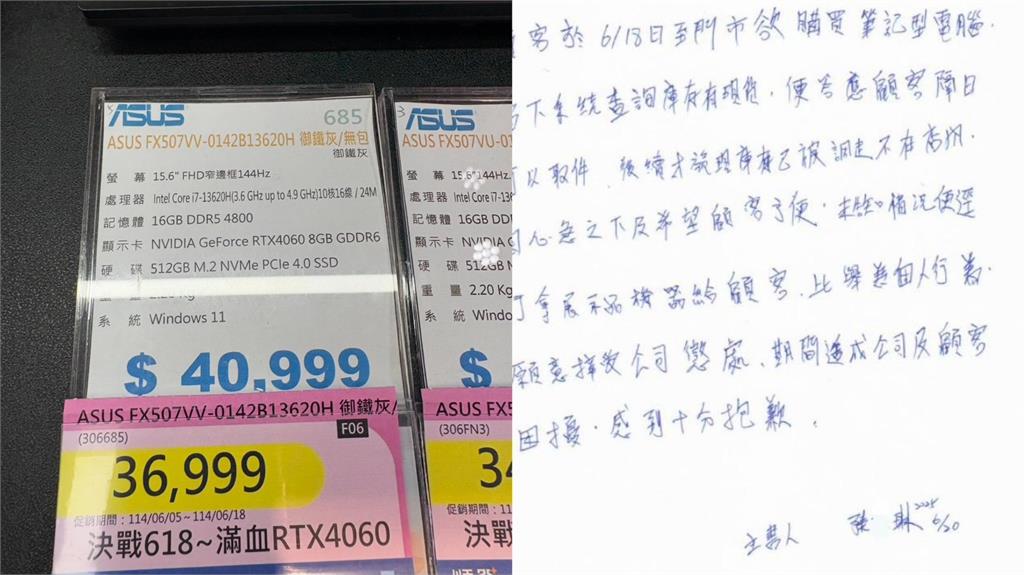 ASUS
685
ASUS FX507VV-0142B13620H 御鐵灰/無包
御鐵灰
螢 幕 15.6" FHD窄邊框144Hz
處理器 Intel Core i7-13620H(3.6 GHz up to 4.9 GHz)10核16緒 / 24M
記憶體 16GB DDR5 4800
顯示卡 NVIDIA GeForce RTX4060 8GB GDDR6
硬 碟 512GB M.2 NVMe PCIe 4.0 SSD
重 量 2.20 Kg
系 統 Windows 11
$ 40,999
ASUS FX507VV-0142B13620H 御鐵灰/
(306685)
F06
36,999
促銷期間:114/06/05~114/06/18
決戰618~滿血RTX4060
ASUS
ASUS FX507VU-0
螢 幕 15.6" 144Hz
處理器 Intel Core i7-1
記憶體 16GB DD
顯示卡 NVIDIA G
硬 碟 512GB M
重 量 2.20 Kg
系 統 Windo
$
ASUS FX5
(306FN3)
34
促銷期間:114
決戰6
客於 6/18日至門市欲購買筆記型電腦.
下系統查詢庫存有現貨,便答應顧客隔日
可以取件,後續才發現庫存已被調走不在高帆.
心急之下及希望顧客方便,未告知情況便逕
拿展示品機器給顧客,此舉為個人行為.
願意接受公司懲處,期間造成公司及顧客
困擾,感到十分抱歉。
立書人 張 琳 2025 6/20